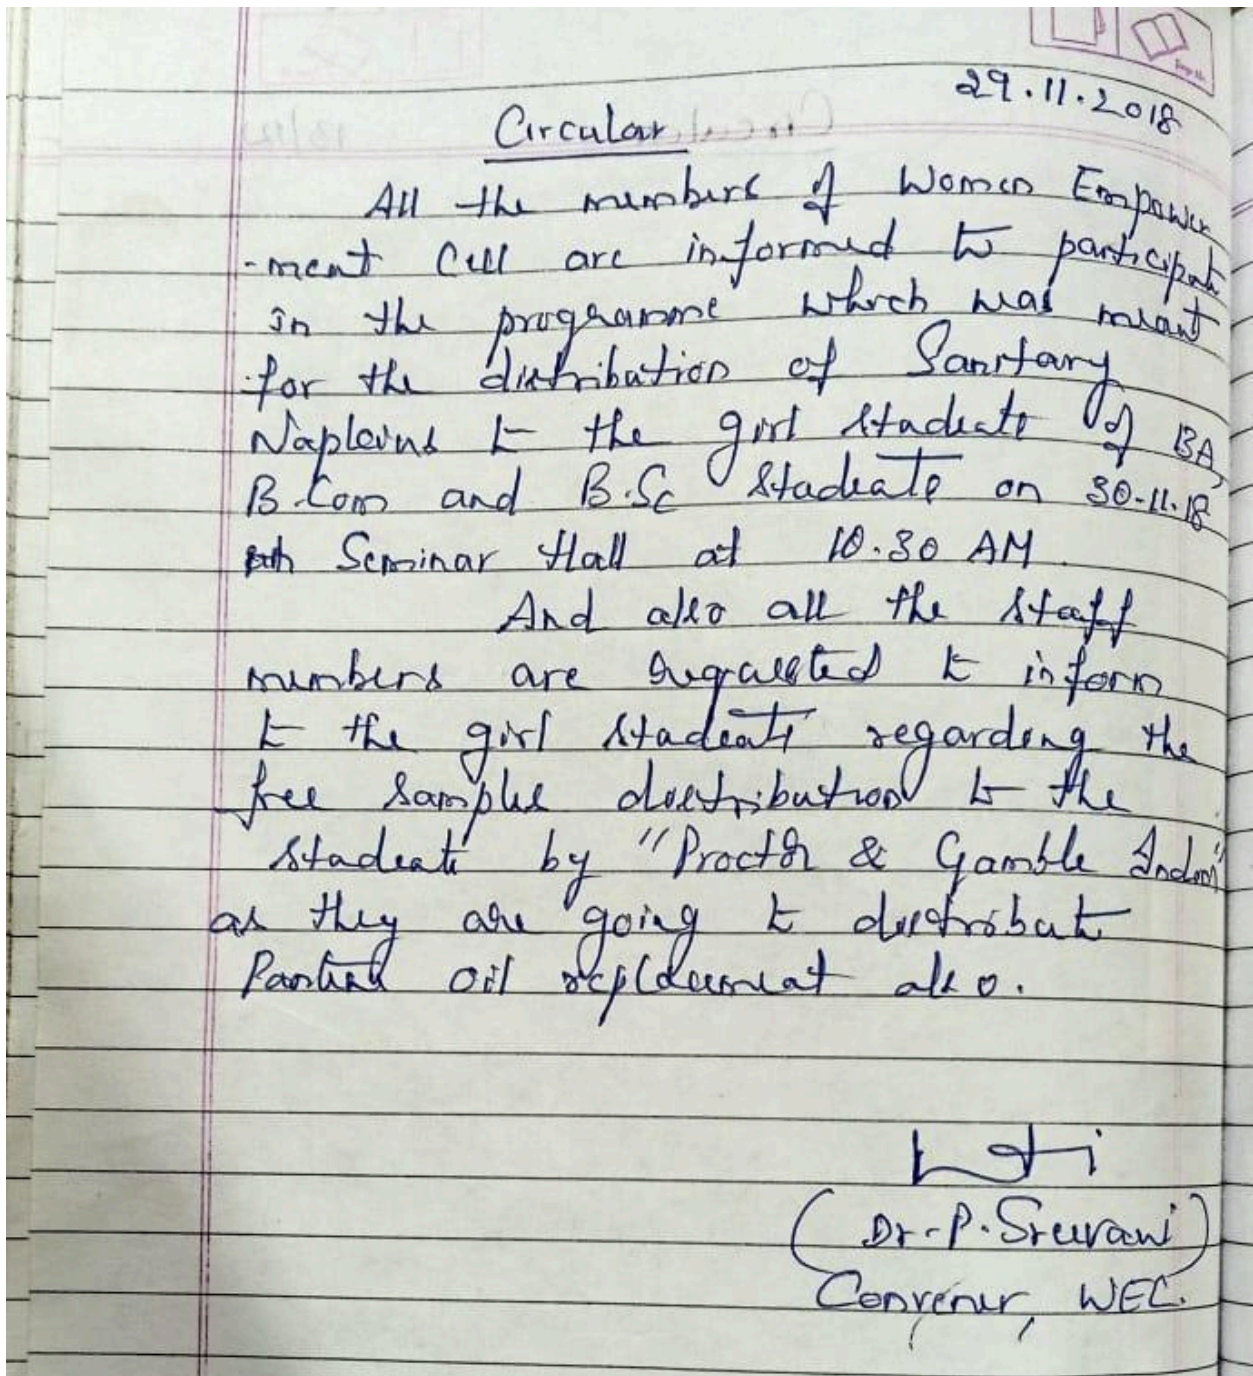 29.11.2018
Circular
All the members of Women Empower
-ment Cell are informed to participate
in the programme which was meant
for the distribution of Sanitary
Napkins to the girl students of BA,
B.Com and B.Sc students on 30-11-18
Seminar Hall at 10.30 AM
And also all the staff
members are requested to inform
to the girl students regarding the
free samples distribution to the
students by "Proctor & Gamble India"
as they are going to distribute
Pantene oil replacement also.
(Dr. P. Sravani)
Convener, WEC.